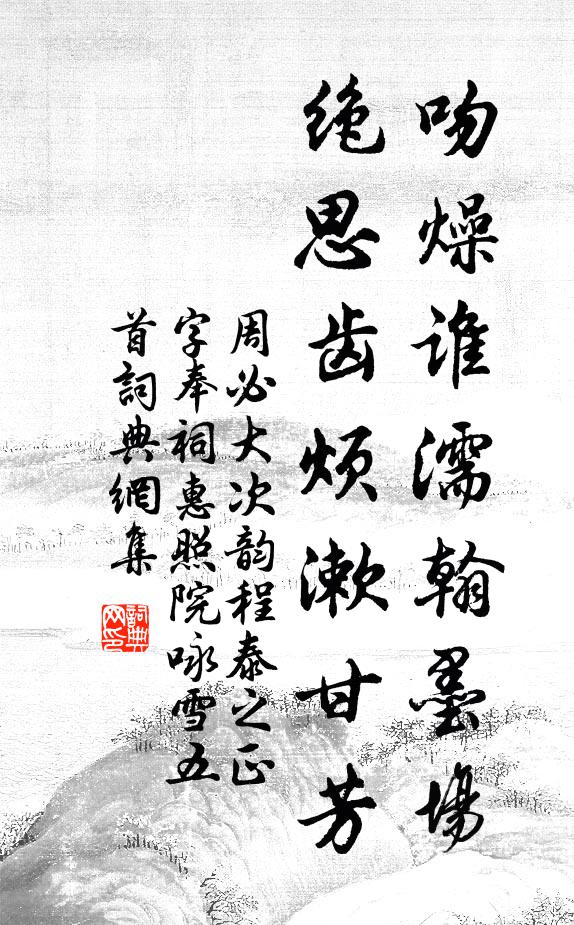 吻燥谁濡翰墨場
绝思齿烦漱甘芳
周必大次韵程泰之正
字奉祠惠照院咏雪五
首詞典網集
詞典
网印